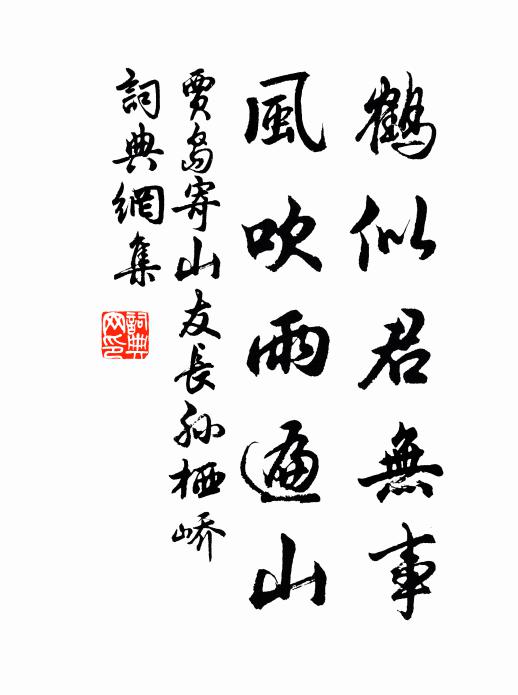 鶴似君無事
風吹雨遍山
賈島寄山友長孫栖嶠
詞典網集
詞典
网印